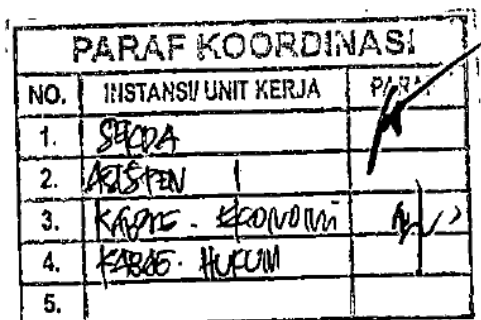 PARAF KOORDINASI
NO. INSTANSI/ UNIT KERJA PARAF
1. SEKDA
2. ASISTEN
3. KABAG. EKONOMI
4. KABAG. HUKUM
5.